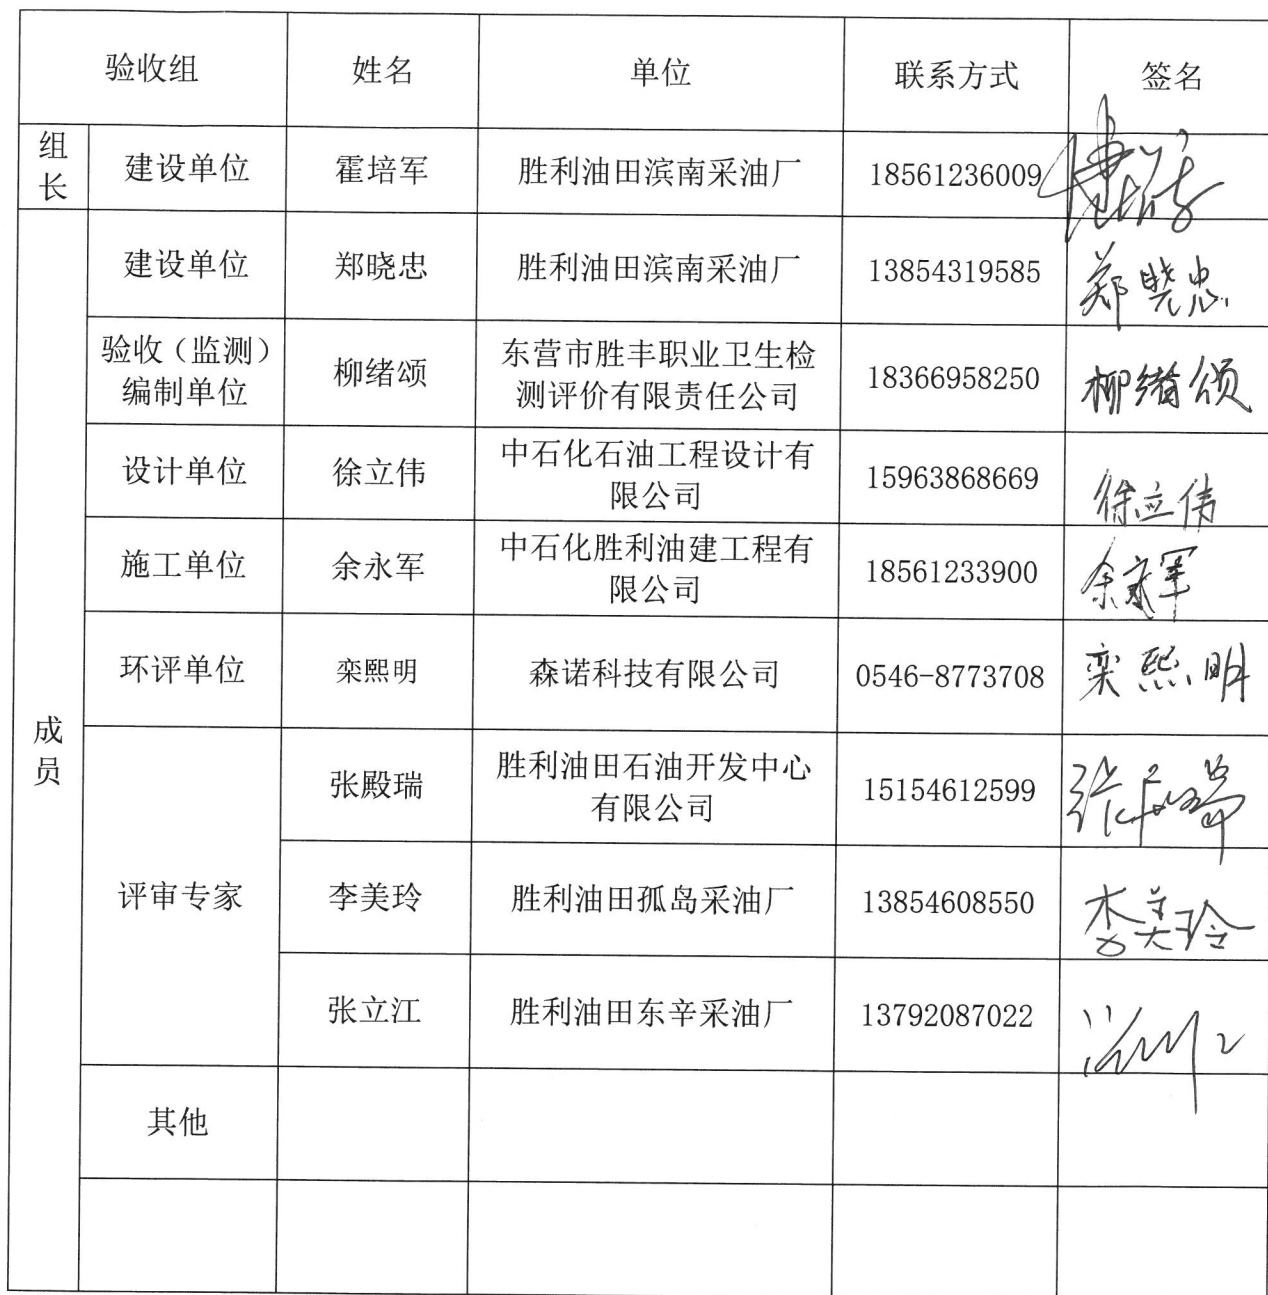 验收组 姓名 单位 联系方式 签名
组长 建设单位 霍培军 胜利油田滨南采油厂 18561236009
成员
建设单位 郑晓忠 胜利油田滨南采油厂 13854319585 郑晓忠
验收（监测）编制单位 柳绪颂 东营市胜丰职业卫生检测评价有限责任公司 18366958250 柳绪颂
设计单位 徐立伟 中石化石油工程设计有限公司 15963868669 徐立伟
施工单位 余永军 中石化胜利油建工程有限公司 18561233900 余永军
环评单位 栾熙明 森诺科技有限公司 0546-8773708 栾熙明
评审专家
张殿瑞 胜利油田石油开发中心有限公司 15154612599
李美玲 胜利油田孤岛采油厂 13854608550 李美玲
张立江 胜利油田东辛采油厂 13792087022
其他